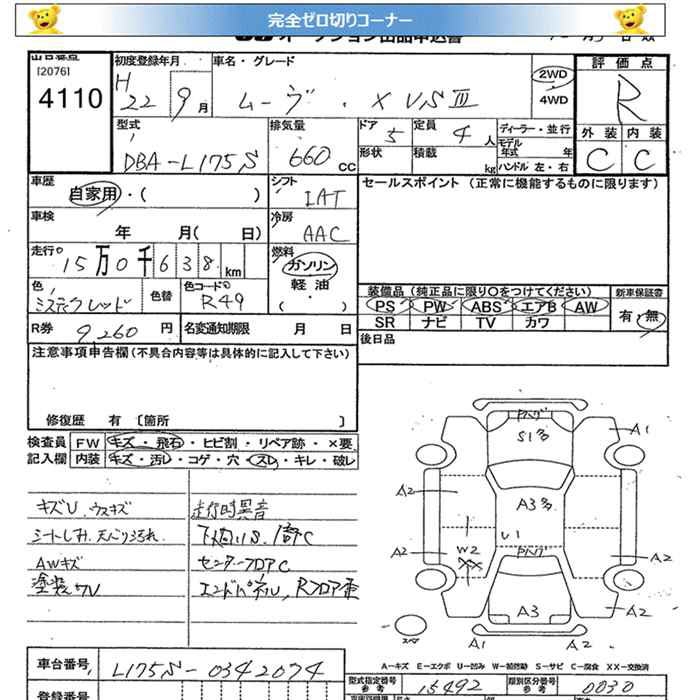 完全ゼロ切りコーナー
オークション出品申込書
[2076]
4110
初度登録年月
H 22 9月
車名・グレード
ムーヴ ・ X VS Ⅲ
2WD
4WD
評価点
R
外装 内装
C C
型式
DBA-L175S
排気量
660 CC
ドア 5
定員 4 人
形状
積載 kg
ディーラー・並行
モデル年式 年
ハンドル 左・右
車歴
自家用・( )
シフト
IAT
セールスポイント (正常に機能するものに限ります)
車検
年 月( 日)
冷房
AAC
走行
15万0千638 km
燃料
ガソリン
軽油
( )
色
ミスティックレッド
色替
色コード
R49
装備品 (純正品に限り○をつけてください)
PS PW ABS エアB AW
SR ナビ TV カワ
新車保証書
有・無
R券 9,260 円
名変通知期限 月 日
後日品
注意事項申告欄 (不具合内容等は具体的に記入して下さい)
修復歴 有 〔箇所 〕
検査員 FW キズ・飛石・ヒビ割・リペア跡・×要
記入欄 内装 キズ・汚レ・コゲ・穴・スレ・キレ・破レ
キズU、ウスキズ
シートしみ、天バリ汚れ
AWキズ
塗装ワレ
走行時異音
下廻りS、1部C
センターフロアC
エンドパネル、Rフロア歪
S1多
A1
A2
A3多
U1
A2
W2
XX
A2
A2
A3
A2
A1
A2
スペア
A-キズ E-エクボ U-凹み W-補修跡 S-サビ C-腐食 XX-交換済
車台番号
L175S-0342074
型式指定番号 参考 15492
類別区分番号 参考 0030
登録番号